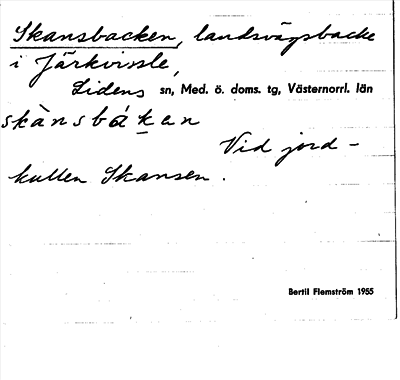 Skansbacken, landsvägsbacke
i Järkvissle,
Lidens sn, Med. ö. doms. tg, Västernorrl. län
skànsbáken
Vid jord-
kullen Skansen.
Bertil Flemström 1955